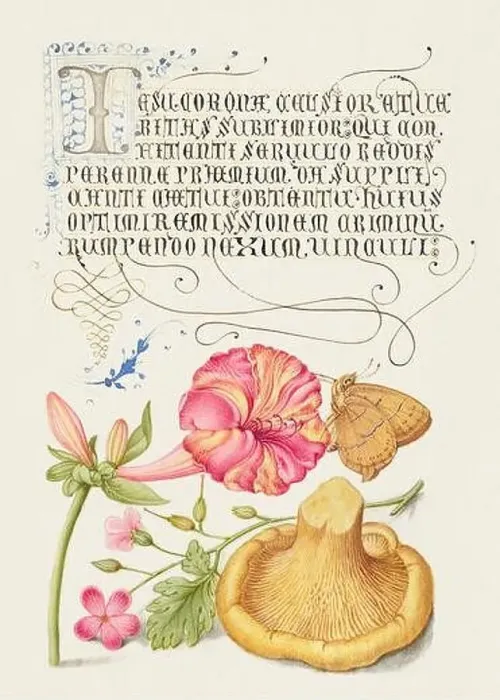 IESU. CORONA CELSIOR ET UE
RITAS SUBLIMIOR: QUI CON.
FITENTI SERUULO REDDIS
PERENNE PRÆMIUM. DA SUPPLI
CANTI CÆTUI: OBTENTU. HUIUS
OPTIMI REMISSIONEM CRIMINŪ
RUMPENDO NEXUM, UINCULI: